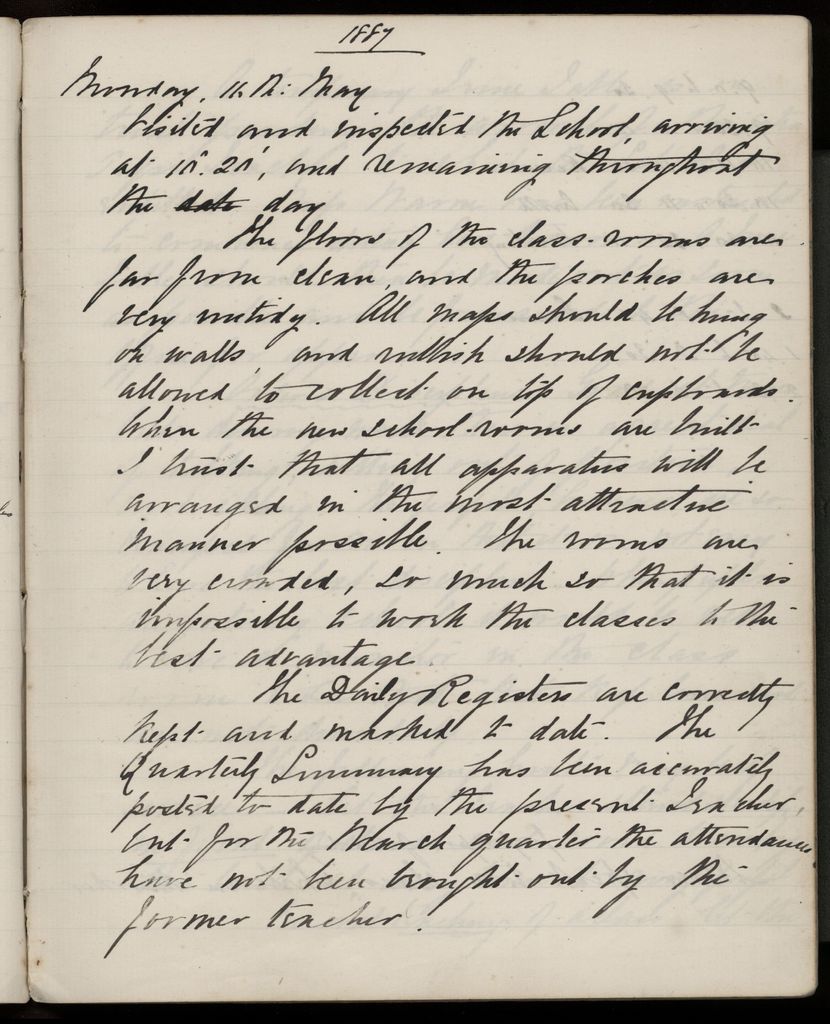 1887
Monday, 16th: May
Visited and inspected the School, arriving
at 10.20, and remaining throughout
the date day
The floors of the class-rooms are
far from clean, and the porches are
very untidy. All maps should be hung
on walls, and rubbish should not be
allowed to collect on top of cupboards.
When the new school-rooms are built
I trust that all apparatus will be
arranged in the most attractive
manner possible. The rooms are
very crowded, so much so that it is
impossible to work the classes to the
best advantage.
The Daily Registers are correctly
kept and marked to date. The
Quarterly Summary has been accurately
posted to date by the present Teacher,
but for the March quarter the attendances
have not been brought out by the
former teacher.